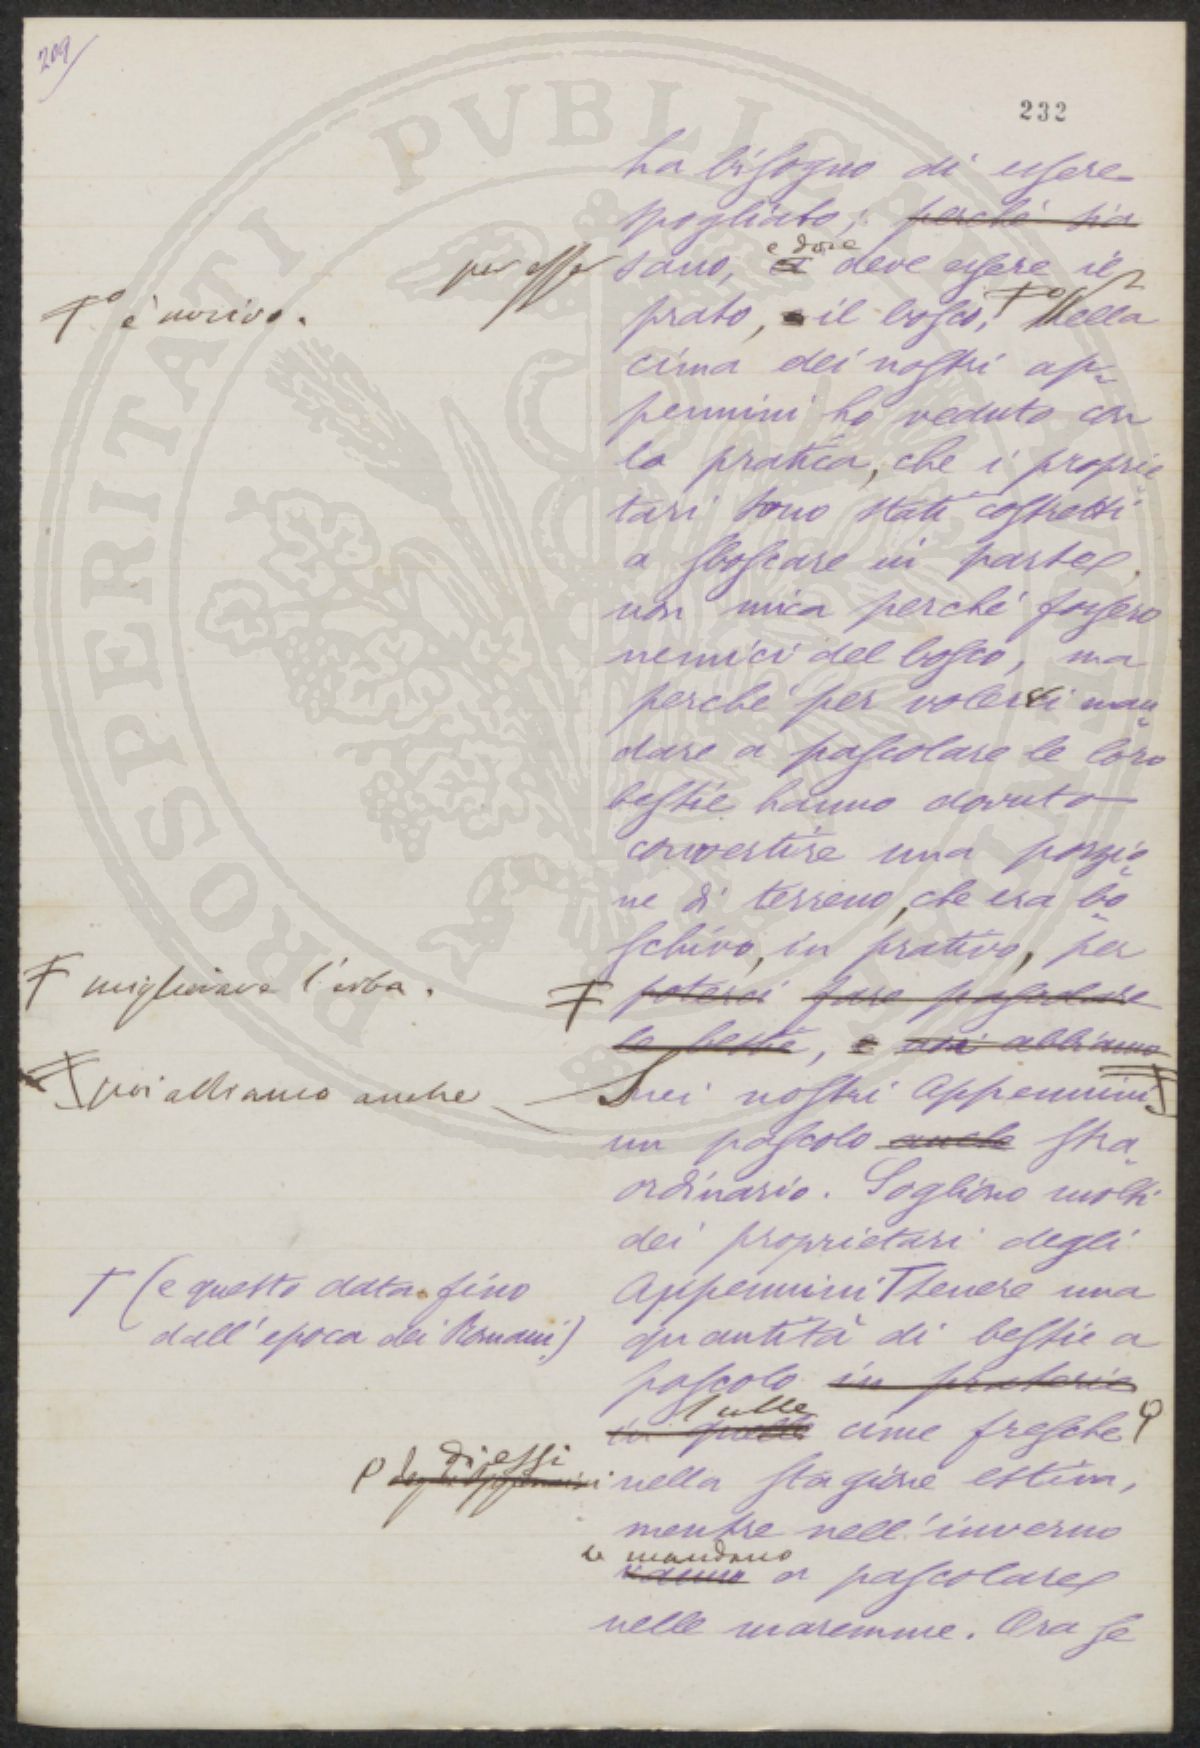 209/
232
ha bisogno di essere
spogliato; perché sia
per esser sano, e dove deve essere il
prato, il bosco, Nella
è nocivo.
cima dei nostri ap-
pennini ho veduto con
la pratica, che i proprie-
tari sono stati costretti
a sboscare in parte
non mica perché fossero
nemici del bosco, ma
perché per volerci man-
dare a pascolare le loro
bestie hanno dovuto
convertire una porzio-
ne di terreno, che era bo-
schivo, in prativo, per
migliorare l'erba.
poterci fare pascolare
le bestie, e noi abbiamo
poi abbiamo anche
nei nostri Appennini
un pascolo anche stra-
ordinario. Sogliono molti
dei proprietari degli
Appennini tenere una
(e questo data fino
dall'epoca dei Romani)
quantità di bestie a
pascolo in praterie
in quelle sulle cime fresche
di essi
degli Appennini
nella stagione estiva,
mentre nell'inverno
le mandano
vanno a pascolare
nelle maremme. Ora se
PROSPERITATI PVBLICAE